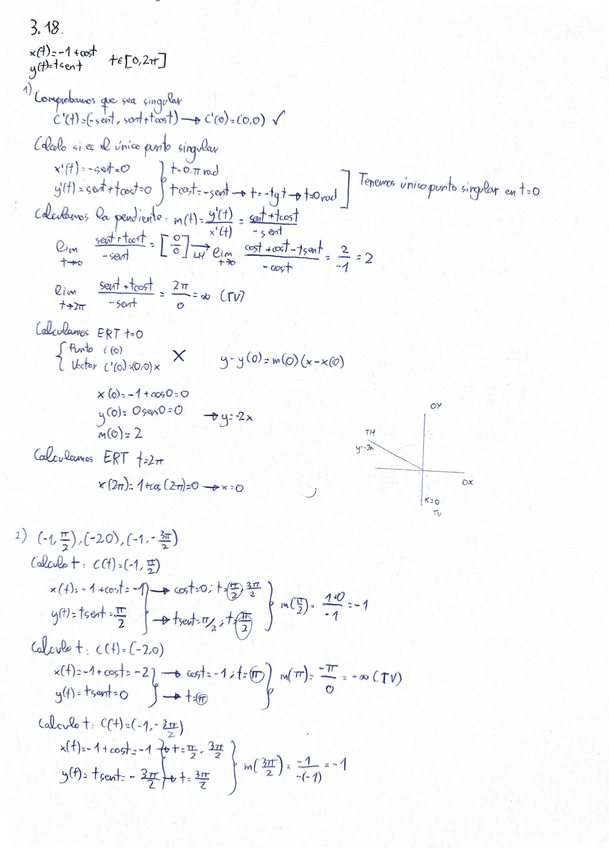 3.18.
x(t)=-1+cost
y(t)=tsent t∈[0,2π]
1) Comprobamos que sea singular
C'(t)=(-sent, sent+tcost) → C'(0)=(0,0) ✓
Calculo si es el único punto singular
x'(t)=-sent=0 } t=0,π rad
y'(t)=sent+tcost=0 } tcost=-sent → t=-tgt → t=0rad ] Tenemos único punto singular en t=0
Calculamos la pendiente: m(t)= y'(t)/x'(t) = sent+tcost/-sent
lim t→0 sent+tcost/-sent = [0/0] →LH lim t→0 cost+cost-tsent/-cost = 2/-1 = 2
lim t→2π sent+tcost/-sent = 2π/0 = ∞ (TV)
Calculamos ERT t=0
{ Punto C(0)
Vector C'(0)=(0,0)x X y-y(0)=m(0)(x-x(0)
x(0)=-1+cos0=0
y(0)=0sen0=0 → y=-2x
m(0)=2
OY
TH
y=-2x
OX
x=0
TV
Calculamos ERT t=2π
x(2π)=1+cos(2π)=0 → x=0
2) (-1,π/2), (-2,0), (-1,-3π/2)
Calculo t: C(t)=(-1,π/2)
x(t)=-1+cost=-1 → cost=0; t=π/2, 3π/2
y(t)=tsent=π/2 → tsent=π/2; t=π/2 } m(π/2)= 1+0/-1 = -1
Calculo t: C(t)=(-2,0)
x(t)=-1+cost=-2 → cost=-1; t=π } m(π)= -π/0 = -∞ (TV)
y(t)=tsent=0 → t=π
Calculo t: C(t)=(-1,-3π/2)
x(t)=-1+cost=-1 → t=π/2, 3π/2
y(t)=tsent=-3π/2 → t=3π/2 } m(3π/2)= -1/-(-1) = -1